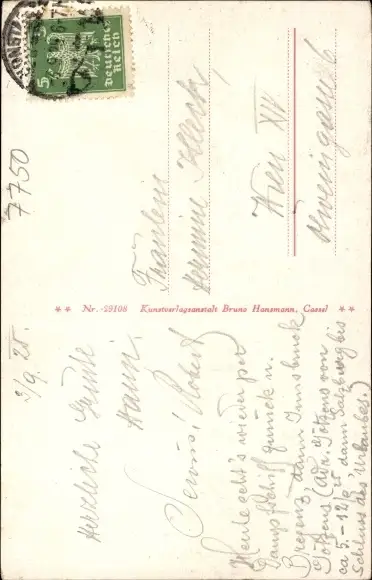 5
Deutsches
Reich
7750
Fräulein
Hermine
Wien XIV
** Nr. 29108 Kunstverlagsanstalt Bruno Hansmann, Cassel **
3/9. 25.
Herzliche Grüße
Hansi.
Servus! Robert
Heute geht's wieder per
Dampfschiff zurück n.
Bregenz, dann Innsbruck
Götzens (Adr. Götzens von
ca 5.-12/9 25 dann Salzburg bis
Schluss des Urlaubes.)